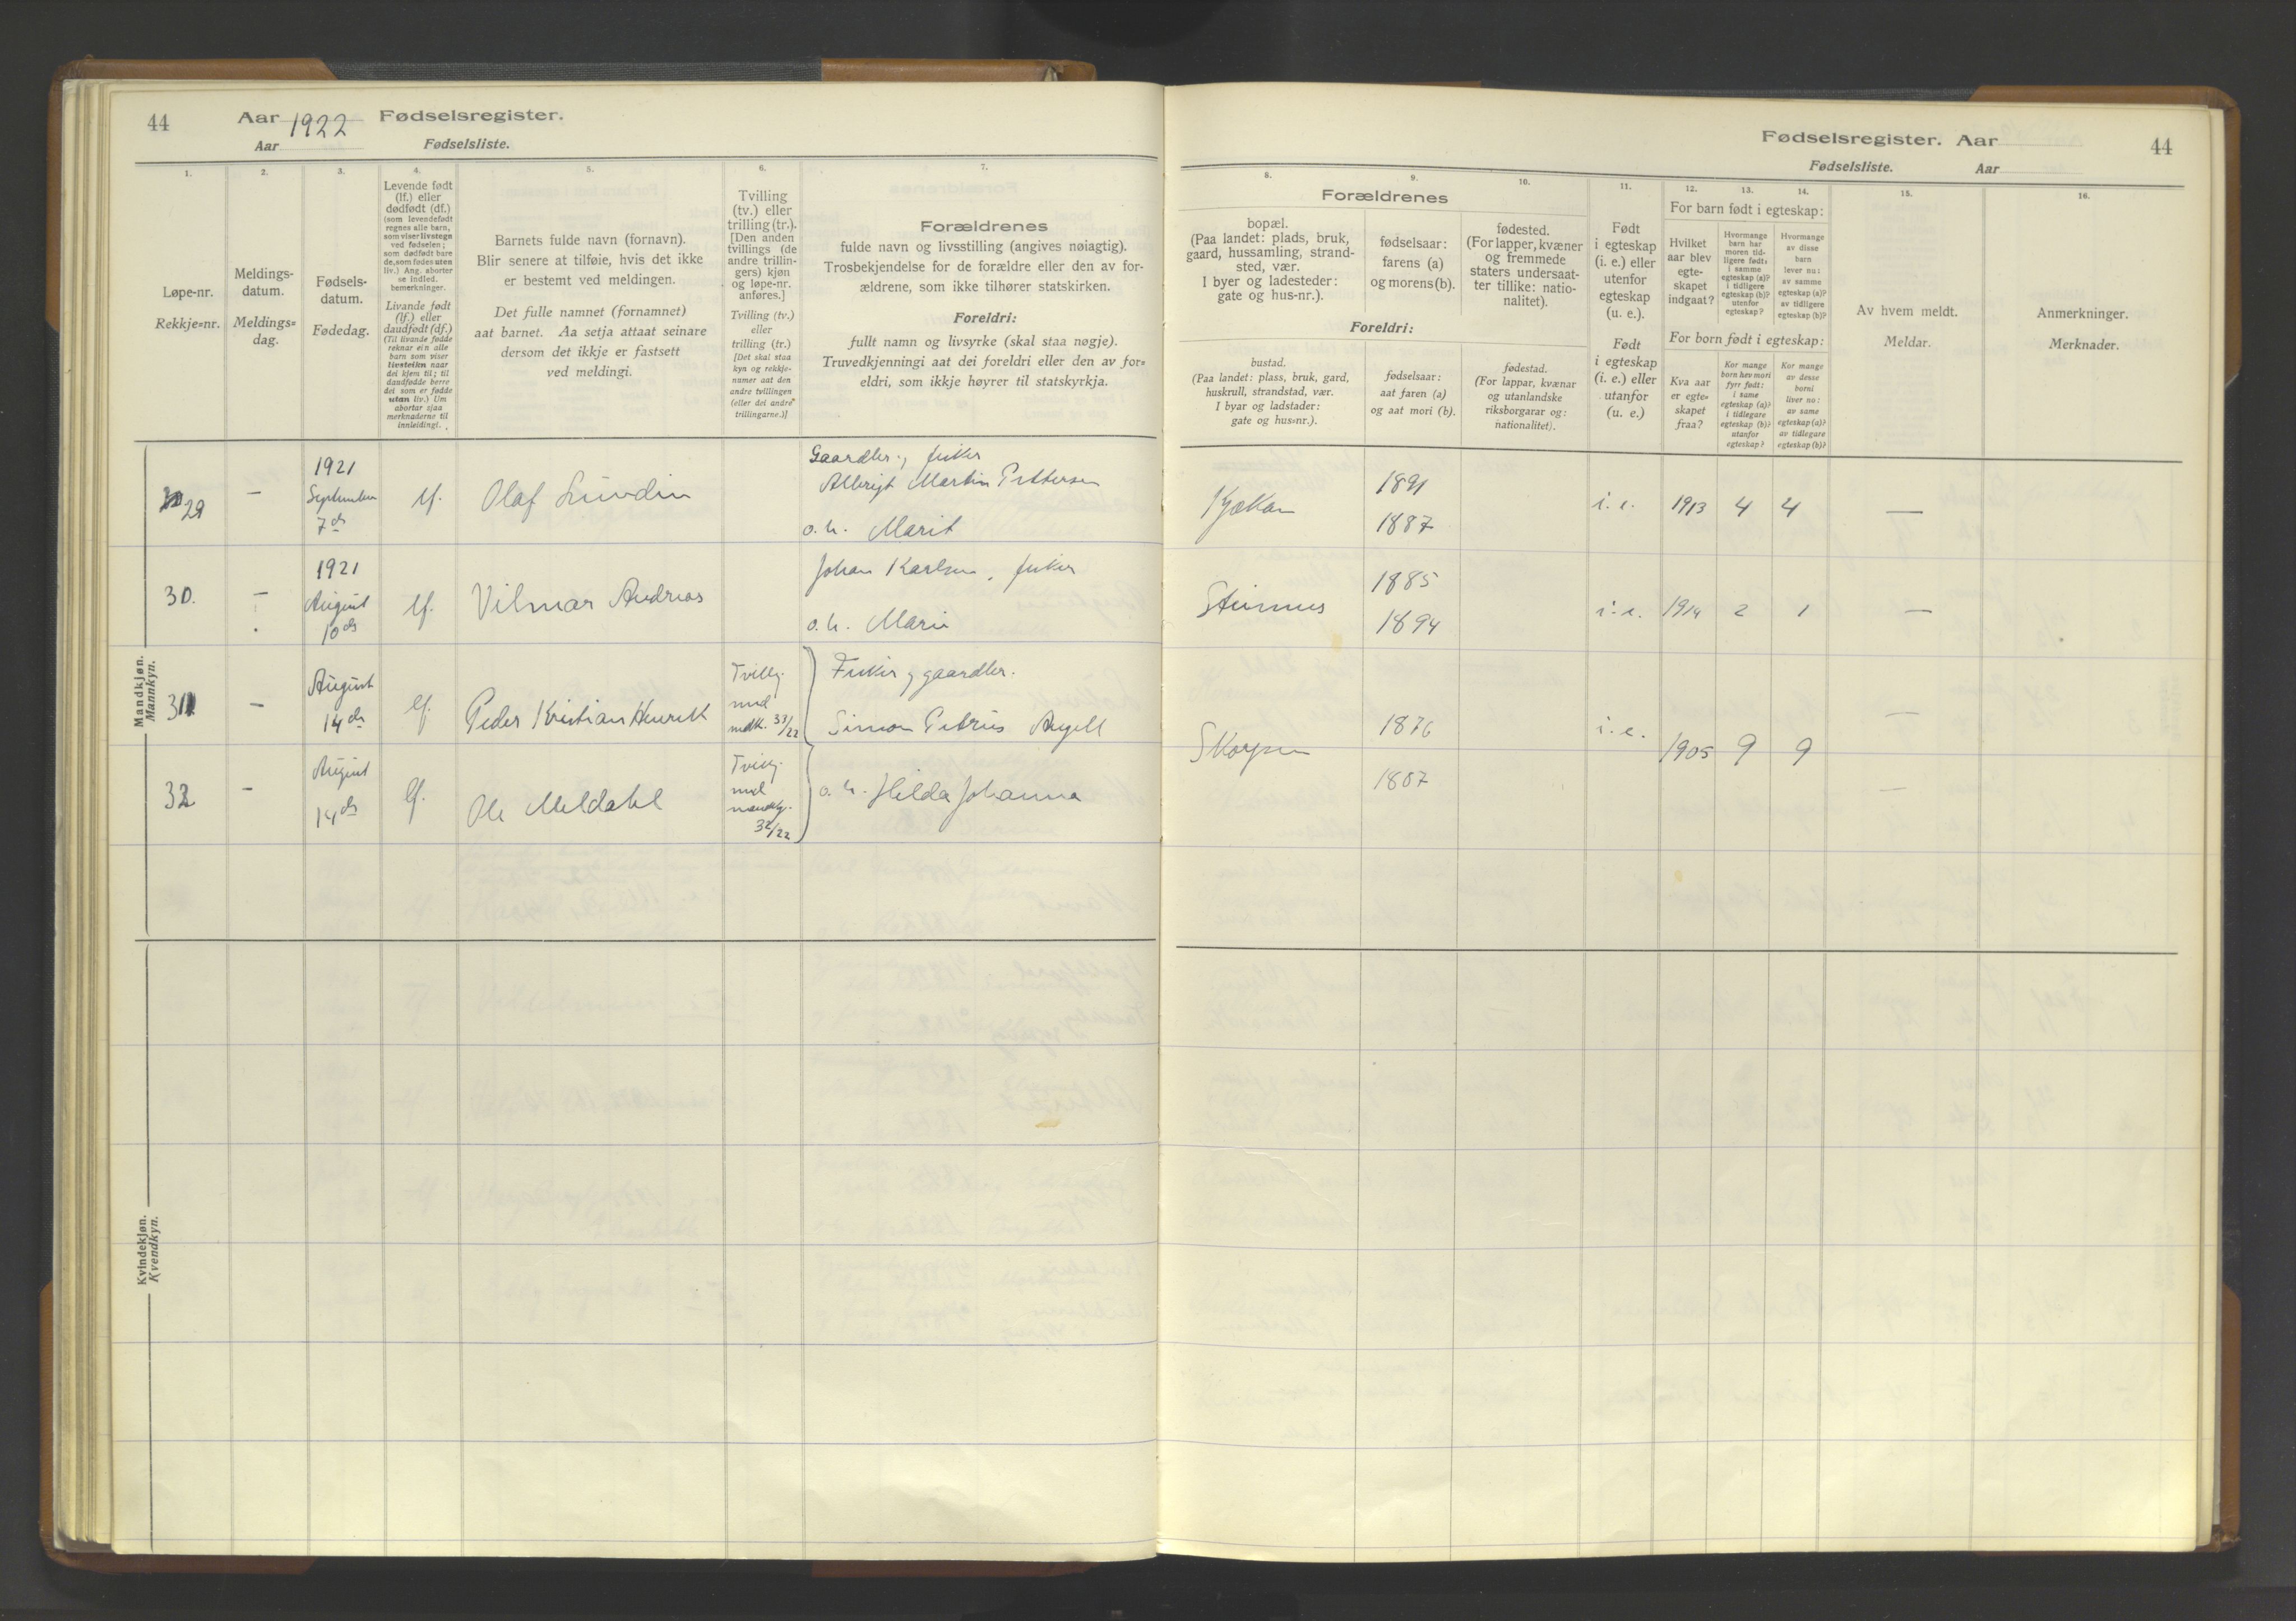 44 Aar 1922 Fødselsregister.
Aar Fødselsliste.
1.
Løpe-nr.
Rekkje=nr.
2.
Meldings-
datum.
Meldings=
dag.
3.
Fødsels-
datum.
Fødedag.
4.
Levende født
(lf.) eller
dødfødt (df.)
(som levendefødt
regnes alle barn,
som viser livstegn
ved fødselen;
som dødfødt bare
de, som fødes uten
liv.) Ang. aborter
se indled.
bemerkninger.
Livande født
(lf.) eller
daudfødt (df.)
(Til livande fødde
reknar ein alle
barn som viser
livsteikn naar
dei kjem til; til
daudfødde berre
dei som er fødde
utan liv.) Um
abortar sjaa
merknaderne til
innleidingi.
5.
Barnets fulde navn (fornavn).
Blir senere at tilføie, hvis det ikke
er bestemt ved meldingen.
Det fulle namnet (fornamnet)
aat barnet. Aa setja attaat seinare
dersom det ikkje er fastsett
ved meldingi.
6.
Tvilling
(tv.) eller
trilling (tr.).
[Den anden
tvillings (de
andre trillin-
gers) kjøn
og løpe-nr.
anføres.]
Tvilling (tv.)
eller
trilling (tr.)
[Det skal staa
kyn og rekkje-
numer aat den
andre tvillingen
(eller dei andre
trillingarne.)]
7.
Forældrenes
fulde navn og livsstilling (angives nøiagtig).
Trosbekjendelse for de forældre eller den av for-
ældrene, som ikke tilhører statskirken.
Foreldri:
fullt namn og livsyrke (skal staa nøgje).
Truvedkjenningi aat dei foreldri eller den av for=
eldri, som ikkje høyrer til statskyrkja.
Fødselsregister. Aar 44
Fødselsliste. Aar
8.
Forældrenes
bopæl.
(Paa landet: plads, bruk,
gaard, hussamling, strand-
sted, vær.
I byer og ladesteder:
gate og hus-nr.).
Foreldri:
bustad.
(Paa landet: plass, bruk, gard,
huskrull, strandstad, vær.
I byar og ladstader:
gate og hus=nr.).
9.
fødselsaar:
farens (a)
og morens (b).
fødselsaar:
aat faren (a)
og aat mori (b).
10.
fødested.
(For lapper, kvæner
og fremmede
staters undersaat-
ter tillike: natio-
nalitet).
fødestad.
(For lappar, kvænar
og utanlandske
riksborgarar og:
nationalitet).
11.
Født
i egteskap
(i. e.) eller
utenfor
egteskap
(u. e.).
Født
i egteskap
(i. e.) eller
utanfor
(u. e.)
12.
13.
14.
For barn født i egteskap:
Hvilket
aar blev
egte-
skapet
indgaat?
Hvormange
barn har
moren tid-
ligere født:
i samme
egteskap (a)?
i tidligere
egteskap (b)?
utenfor
egteskap?
Hvormange
av disse
barn
lever nu:
av samme
egteskap (a)?
av tidligere
egteskap (b)?
For born født i egteskap:
Kva aar
er egte=
skapet
fraa?
Kor mange
born hev mori
fyrr født:
i same
egteskap (a)?
i tidlegare
egteskap (b)?
utanfor
egteskap?
Kor mange
av desse
borni
liver no:
av same
egteskap (a)?
av tidlegare
egteskap (b)?
15.
Av hvem meldt.
Meldar.
16.
Anmerkninger.
Merknader.
Mandkjøn.
Mannkyn.
29
1921
September
7de
lf.
Olaf Lundin
Gaardbr. fisker
Albrigt Martin Pettersen
o. h. Marit
Kjækan
1891
1887
i. e. 1913 4 4 —
30.
1921
August
10de
lf.
Vilmar Andreas
Johan Karlsen, fisker
o. h. Marie
1885
1894
i. e. 1914 2 1 —
31
August
14de
lf.
Peder Kristian Henrik
Tvillg.
med
mdk. 33/22
Fisker og gaardbr.
Simon Petrus
Skorpen
1876
i. e. 1905 9 9 —
32
August
14de
lf.
Ole Meldahl
Tvillg.
med
32/22
o. h. Hilda Johanna
Kvindekjøn.
Kvendkyn.